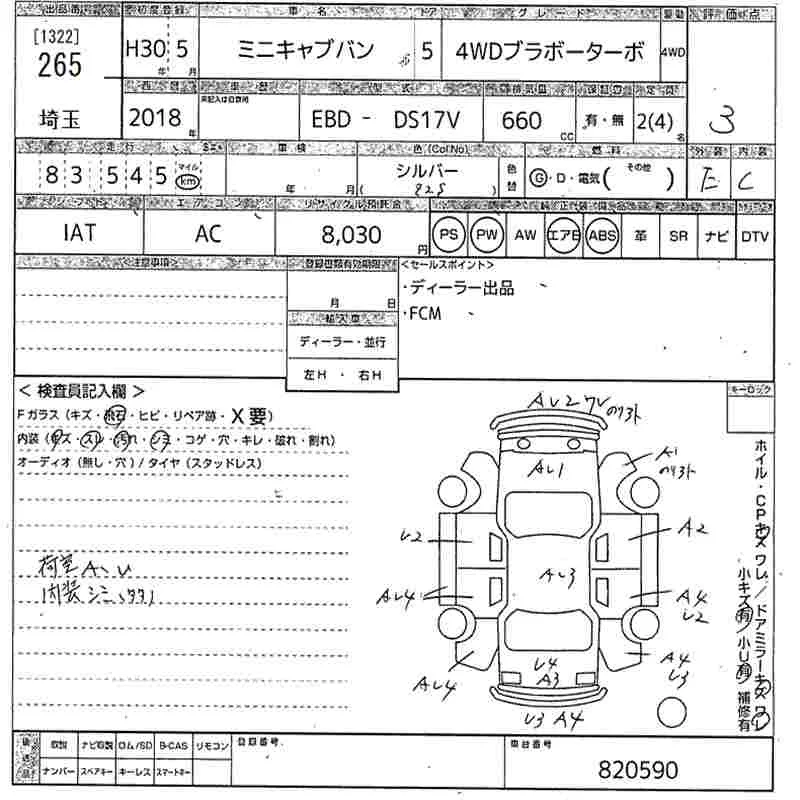 出品番号 初度登録 車名 ドア グレード 駆動 評価点
[1322]
265
H30 5 年 月 ミニキャブバン 5 4WDブラボーターボ 4WD
西暦 車歴 型式 排気量 保証書 定員
未記入は自家用
埼玉 2018 年 EBD - DS17V 660 CC 有・無 2(4) 名 3
走行 車検 色(Col No) 燃料 外装 内装
83545 マイル km 年 月 シルバー ( 828 ) 色替 G・D・電気( その他 ) E C
シフト エアコン リサイクル預託金
IAT AC 8,030 円 PS PW AW エアB ABS 革 SR ナビ DTV
<注意事項> 登録書類有効期限 <セールスポイント>
月 日 ・ディーラー出品
・FCM
輸入車
ディーラー・並行
左H ・ 右H
< 検査員記入欄 > キーロック
Fガラス(キズ・飛石・ヒビ・リペア跡・X要)
内装(キズ・スレ・汚れ・シミ・コゲ・穴・キレ・破れ・割れ)
オーディオ(無し・穴)/タイヤ(スタッドレス)
荷室A、U
内装シミ
AU2
AU1
A1
U2
A2
AU3
AU4
A4
U2
AU4
U4
A3
A4
U3
U3 A4
ホイル・CPキズ ワレ/ドアミラーキズ ワレ
小キズ有/小U有/補修有
後送品 取説 ナビ取説 ロム/SD B-CAS リモコン 登録番号 車台番号
ナンバー スペアキー キーレス スマートキー 820590